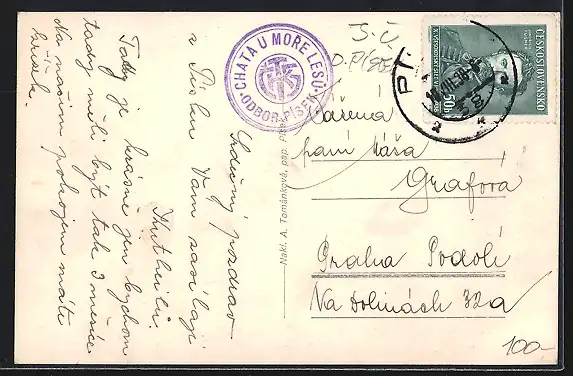 Srdečný pozdrav
z Písku Vám zasílají
Tady je krásně jen bychom
tady měli být tak 3 měsíce.
Na našim pokojem máte
CHATA U MORE LESŮ
KČST
ODBOR PÍSEK
Nakl. A. Tománková, pap. Písek
J.Č.
O. PÍSEK
ČESKOSLOVENSKO
50h
Vážená
paní Máša
Grafová
Praha Podolí
Na Dolinách 32a
100-